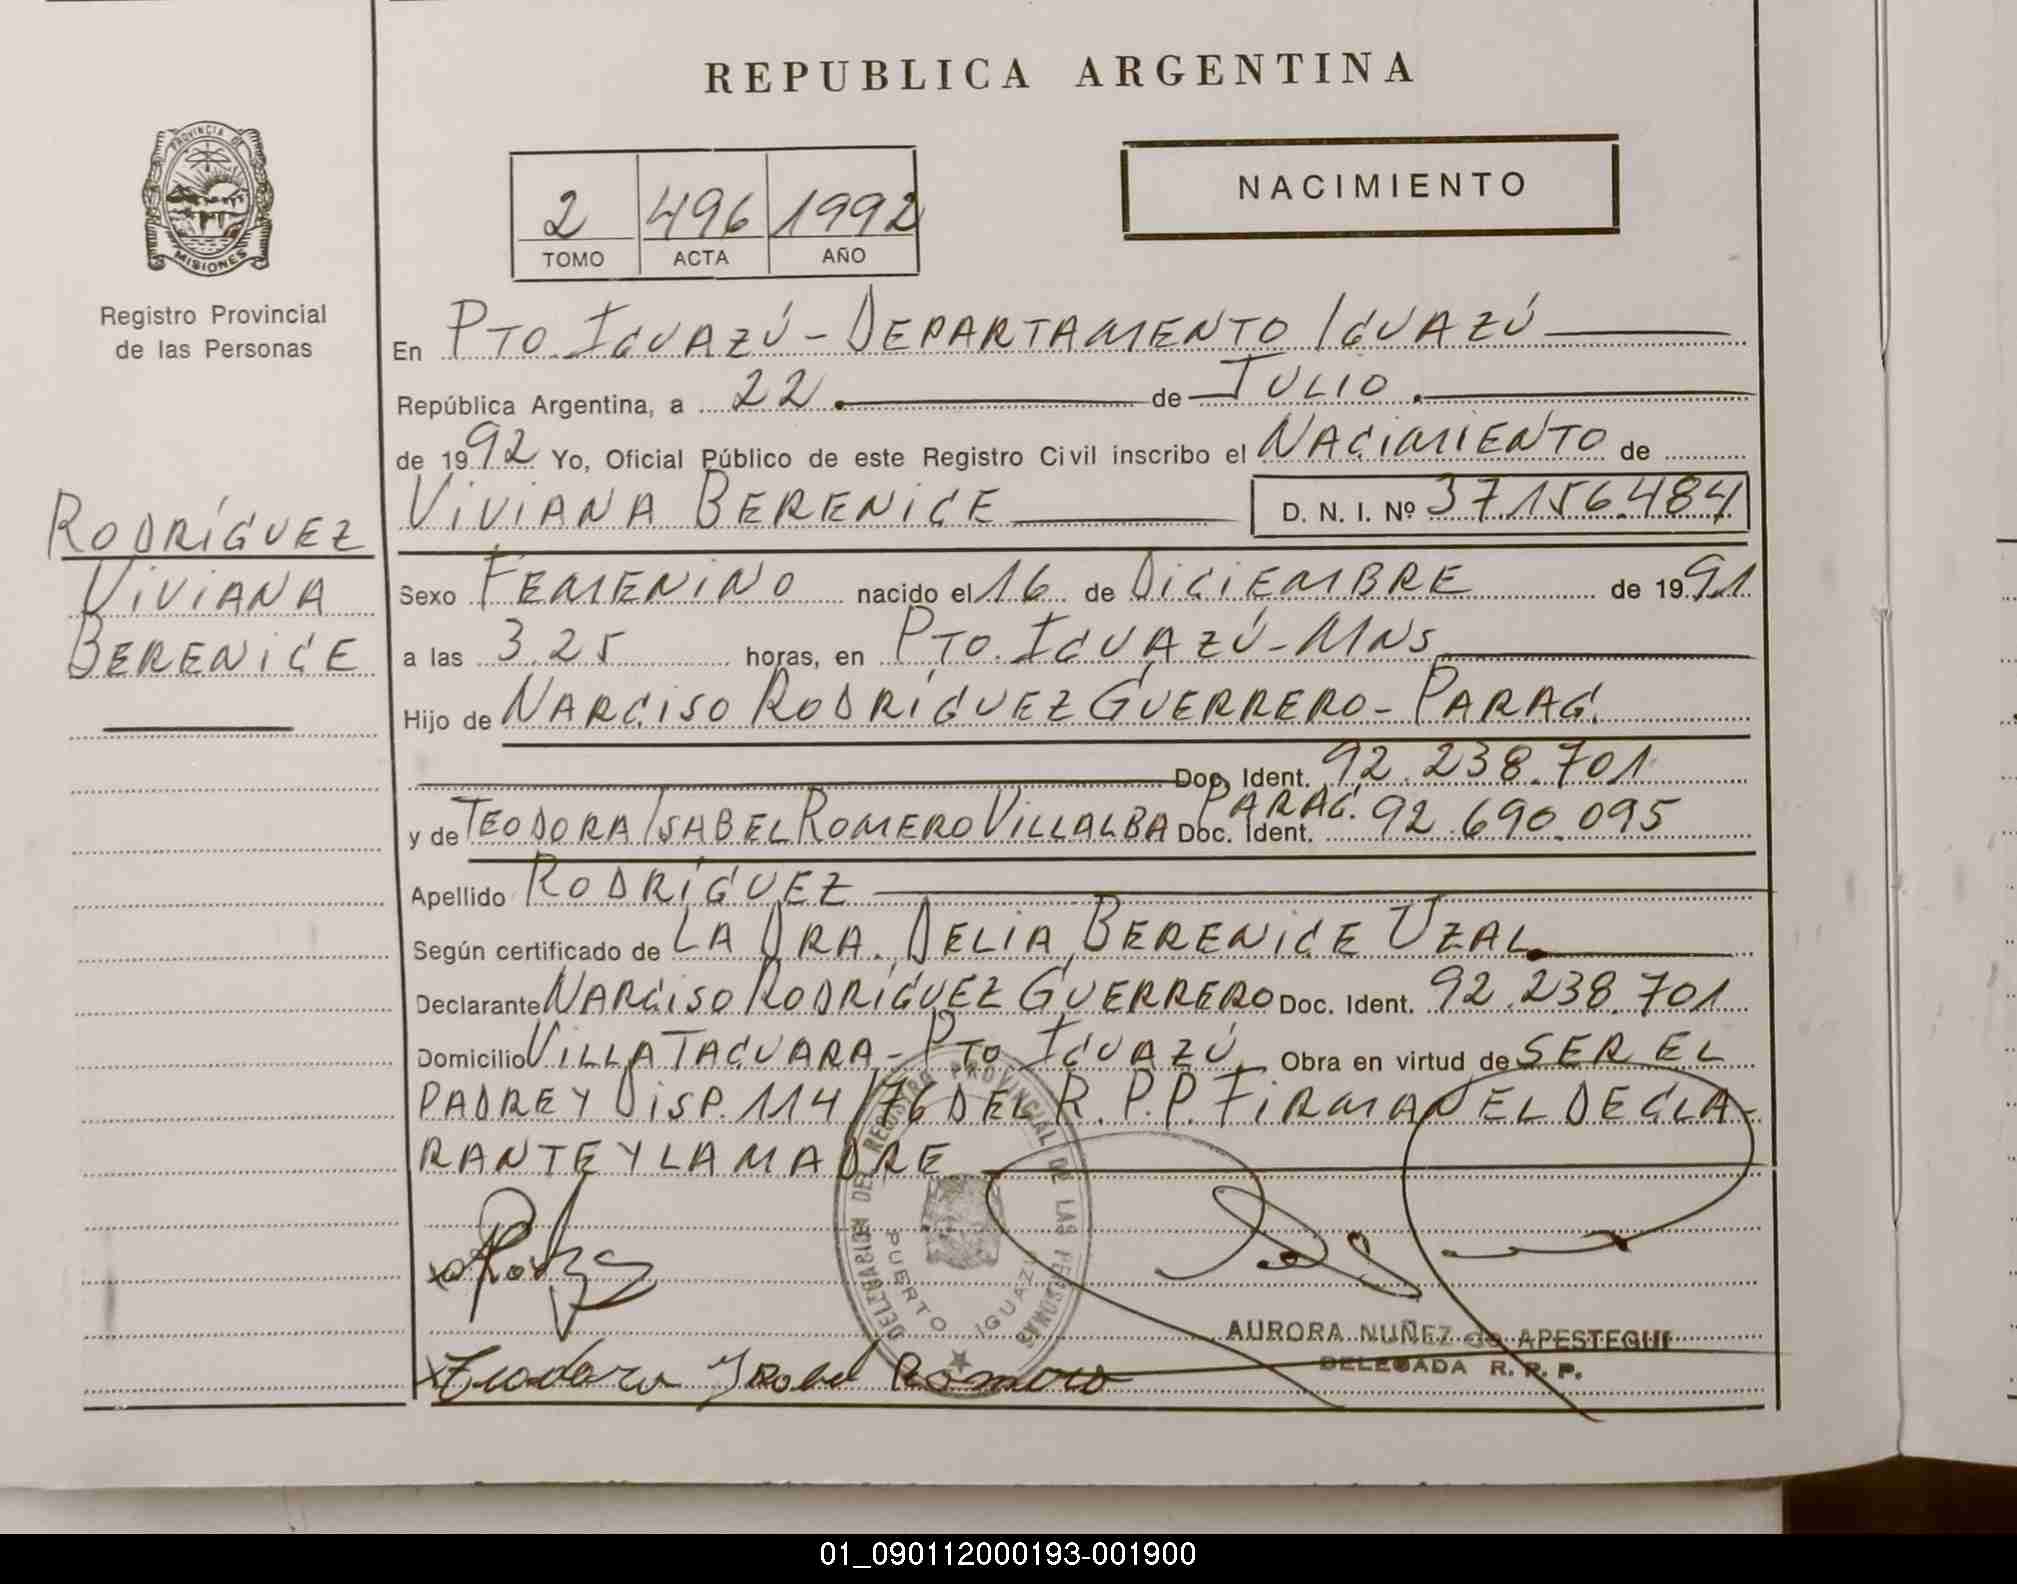 REPUBLICA ARGENTINA
PROVINCIA DE
MISIONES
Registro Provincial
de las Personas
2 496 1992
TOMO ACTA AÑO
NACIMIENTO
En PTO. IGUAZÚ - DEPARTAMENTO IGUAZÚ
República Argentina, a 22 de JULIO
de 1992 Yo, Oficial Público de este Registro Civil inscribo el NACIMIENTO de
VIVIANA BERENICE D. N. I. Nº 37.156.484
RODRÍGUEZ
VIVIANA
BERENICE
Sexo FEMENINO nacido el 16 de DICIEMBRE de 1991
a las 3.25 horas, en PTO. IGUAZÚ - MNS
Hijo de NARCISO RODRÍGUEZ GUERRERO - PARAG.
Doc. Ident. 92.238.701
y de TEODORA ISABEL ROMERO VILLALBA PARAG. Doc. Ident. 92.690.095
Apellido RODRÍGUEZ
Según certificado de LA DRA. DELIA BERENICE UZAL
Declarante NARCISO RODRÍGUEZ GUERRERO Doc. Ident. 92.238.701
Domicilio VILLA TACUARA - PTO IGUAZÚ Obra en virtud de SER EL
PADRE Y DISP. 114/76 DEL R.P.P. FIRMAN EL DECLA-
RANTE Y LA MADRE
DELEGACION DEL REGISTRO PROVINCIAL DE LAS PERSONAS
PUERTO IGUAZU
AURORA NUÑEZ de APESTEGUI
DELEGADA R. P. P.
x Teodora Isabel Romero
01_090112000193-001900